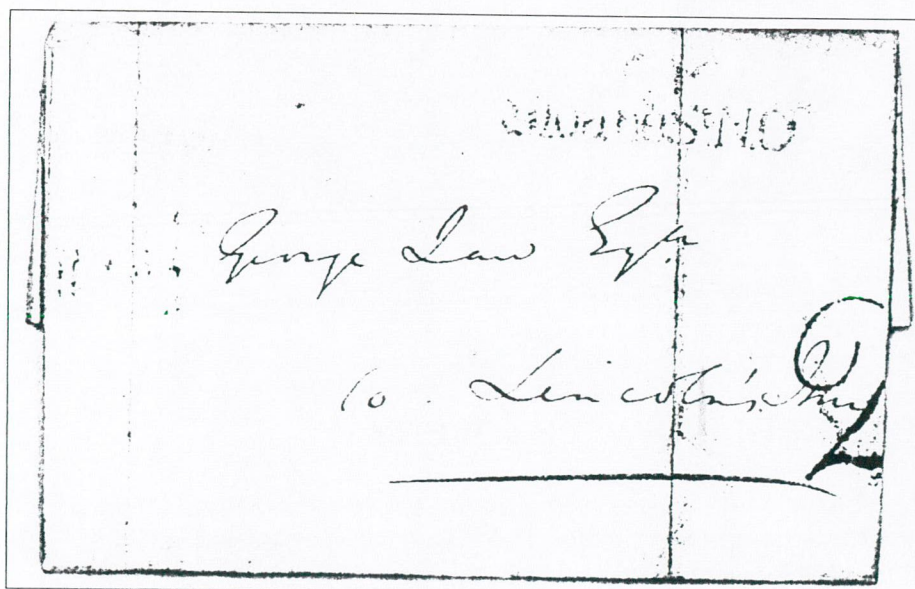 George Law Esqr
10 Lincoln's Inn
2